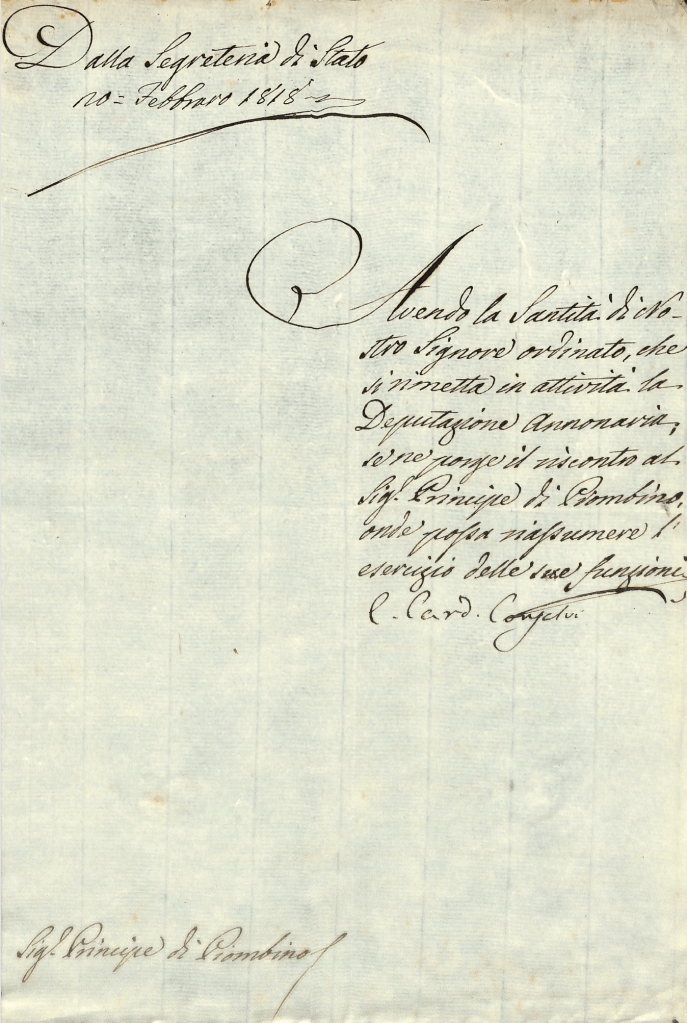 Dalla Segreteria di Stato
20= Febbraro 1818
Avendo la Santità di No-
stro Signore ordinato, che
si rimetta in attività la
Deputazione Annonaria,
se ne porge il riscontro al
Sigr. Principe di Piombino,
onde possa riassumere l'
esercizio delle sue funzioni
E. Card. Consalvi
Sigr. Principe di Piombino